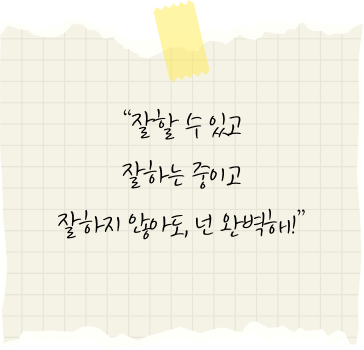 “잘할 수 있고
잘하는 중이고
잘하지 않아도, 넌 완벽해!”